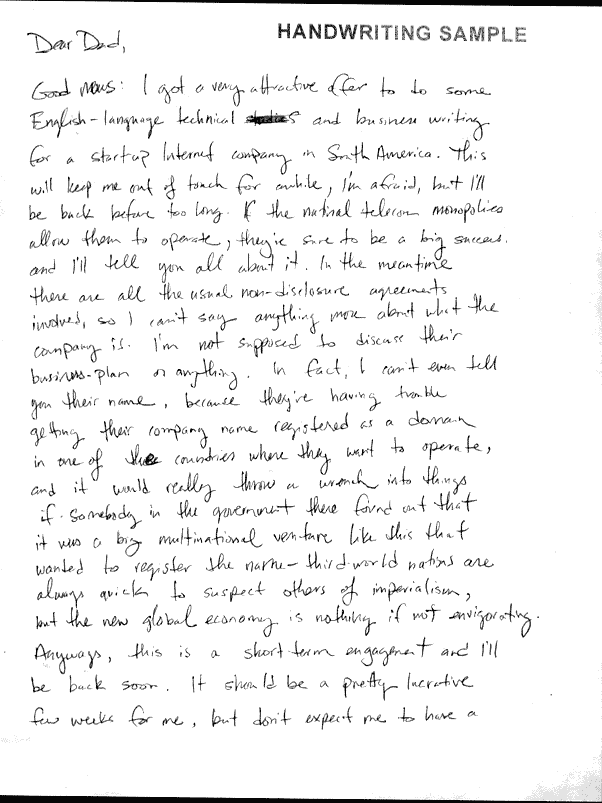 HANDWRITING SAMPLE
Dear Dad,
Good news: I got a very attractive offer to do some
English-language technical and business writing
for a startup Internet company in South America. This
will keep me out of touch for awhile, I'm afraid, but I'll
be back before too long. If the national telecom monopolies
allow them to operate, they're sure to be a big success.
and I'll tell you all about it. In the meantime
there are all the usual non-disclosure agreements
involved, so I can't say anything more about what the
company is. I'm not supposed to discuss their
business-plan or anything. In fact, I can't even tell
you their name, because they're having trouble
getting their company name registered as a domain
in one of the countries where they want to operate,
and it would really throw a wrench into things
if somebody in the government there found out that
it was a big multinational venture like this that
wanted to register the name - third-world nations are
always quick to suspect others of imperialism,
but the new global economy is nothing if not envigorating.
Anyways, this is a short term engagement and I'll
be back soon. It should be a pretty lucrative
few weeks for me, but don't expect me to have a